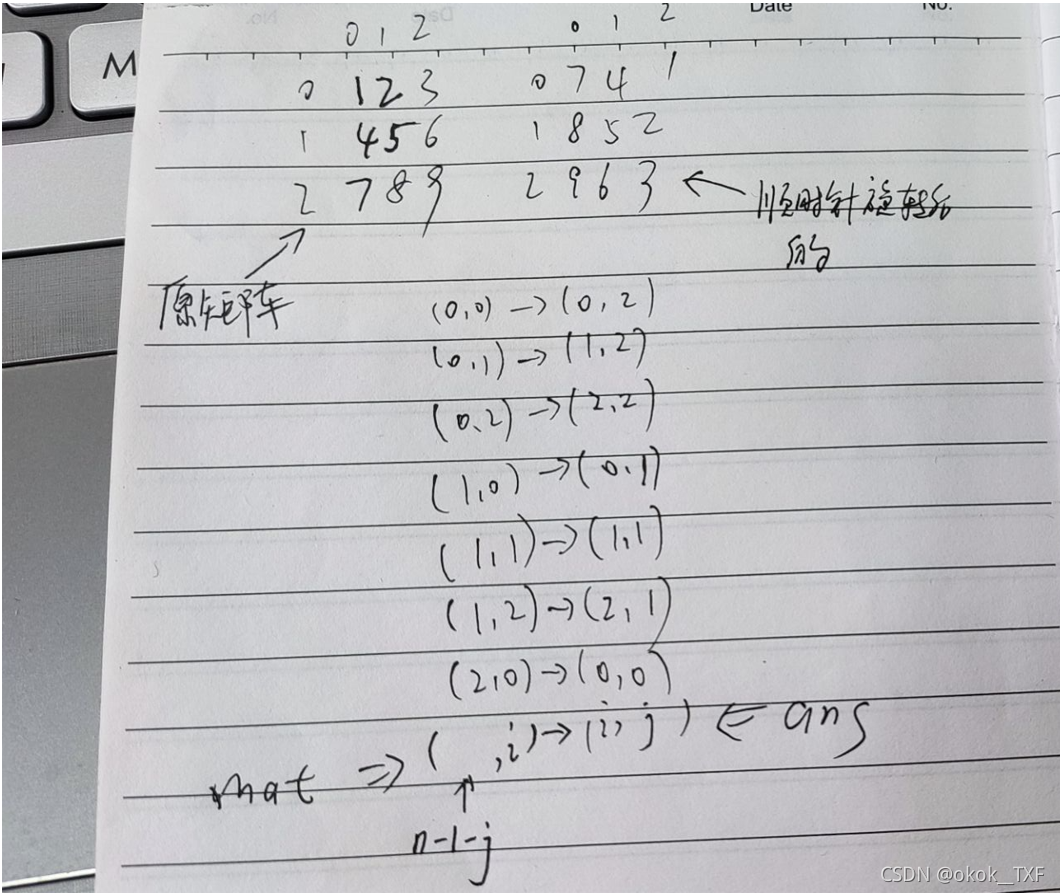 M
Date No.
0 1 2 0 1 2
0 1 2 3 0 7 4 1
1 4 5 6 1 8 5 2
2 7 8 9 2 9 6 3
顺时针旋转后
的
原矩阵
(0,0) → (0,2)
(0,1) → (1,2)
(0,2) → (2,2)
(1,0) → (0,1)
(1,1) → (1,1)
(1,2) → (2,1)
(2,0) → (0,0)
mat ⇒ ( ,i) → (i,j) ⇐ ans
n-1-j
CSDN @okok__TXF